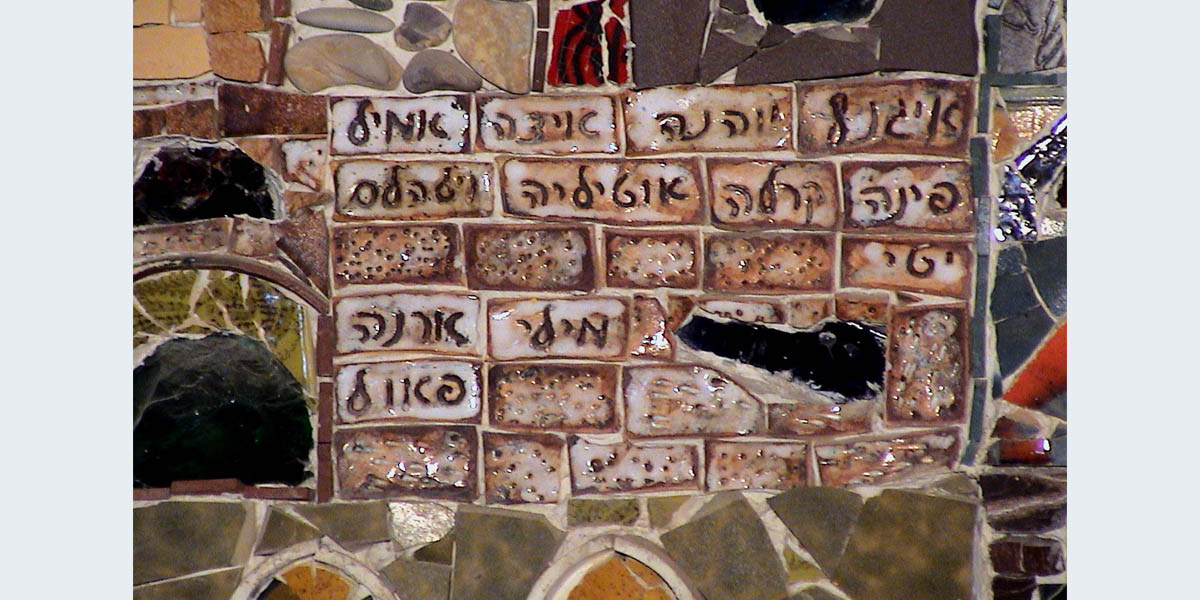 אויגן יוהנה אידה אמיל
פינה קרלה אוטיליה וילהלם
יטי
מילי ארנה
פאול